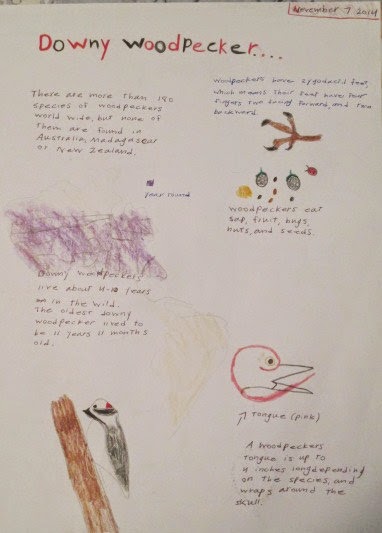 November 7 2014
Downy woodpecker....
There are more than 180
species of woodpeckers
world wide, but none of
them are found in
Australia, Madagascar
or New Zealand.
woodpeckers have zygodactyl feet,
which means their feet have four
fingers two facing forward, and two
backward.
year round
woodpeckers eat
sap, fruit, bugs,
nuts, and seeds.
Downy woodpeckers
live about 4-10 years
in the wild.
The oldest downy
woodpecker lived to
be 11 years 11 months
old.
↗ Tongue (pink)
A woodpeckers
tongue is up to
4 inches long depending
on the species, and
wraps around the
skull.